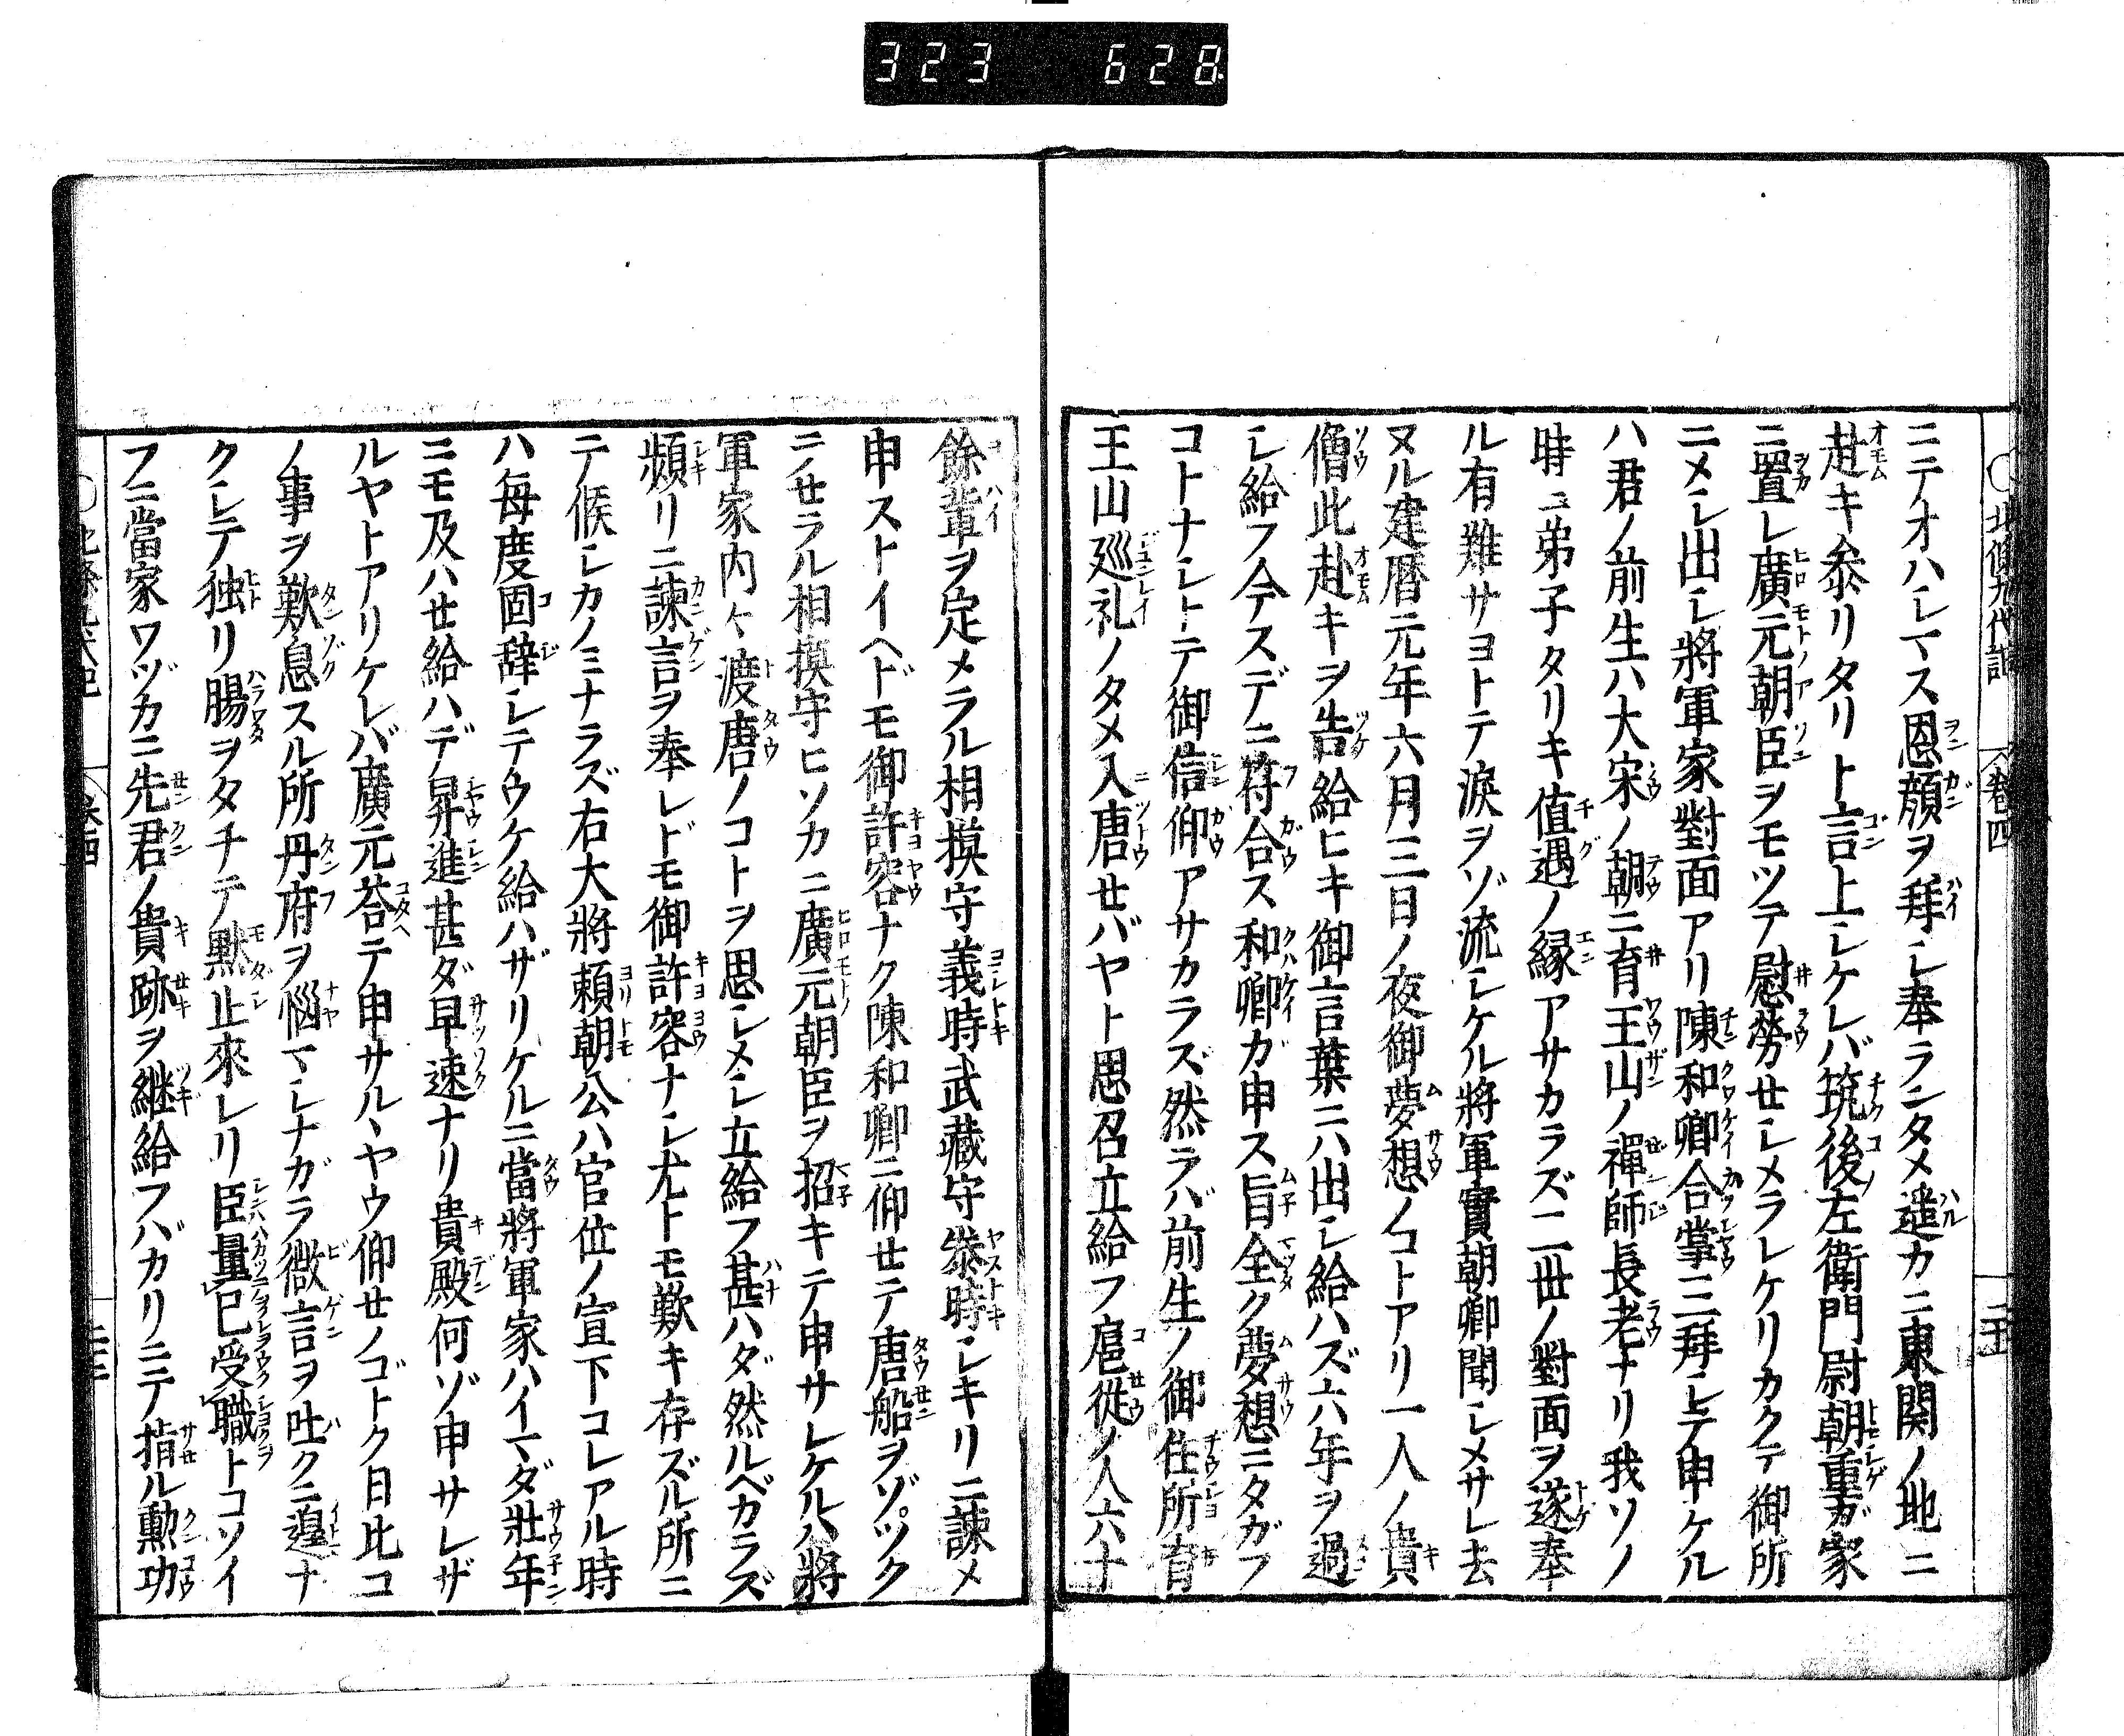 323 628
北條九代記 巻四
ニテオハシマス恩顔ヲ拜シ奉ランタメ遥カニ東関ノ地ニ
赴キ参リタリト言上シケレバ筑後左衛門尉朝重ガ家
ニ置レ廣元朝臣ヲモツテ慰勞セシメラレケリカクテ御所
ニメシ出シ將軍家對面アリ陳和卿合掌三拜シテ申ケル
ハ君ノ前生ハ大宋ノ朝ニ育王山ノ禪師長老ナリ我ソノ
時ニ弟子タリキ値遇ノ縁アサカラズ二世ノ對面ヲ遂奉
ル有難サヨトテ涙ヲゾ流シケル將軍實朝卿聞シメサレ去
ヌル建暦元年六月三日ノ夜御夢想ノコトアリ一人ノ貴
僧此赴キヲ告給ヒキ御言葉ニハ出シ給ハズ六年ヲ過
シ給フ今スデニ符合ス和卿ガ申ス旨全ク夢想ニタガフ
コトナシトテ御信仰アサカラズ然ラバ前生ノ御住所育
王山巡礼ノタメ入唐セバヤト思召立給フ扈從ノ人六十
餘輩ヲ定メラル相摸守義時武藏守泰時シキリニ諫メ
申ストイヘドモ御許容ナク陳和卿ニ仰セテ唐船ヲゾツク
ニノセラル相摸守ヒソカニ廣元朝臣ヲ招キテ申サレケルハ將
軍家内々渡唐ノコトヲ思シメシ立給フ甚ハダ然ルベカラズ
頻リニ諫言ヲ奉レドモ御許容ナシ尤トモ歎キ存ズル所ニ
テ候シカノミナラズ右大將頼朝公ハ官位ノ宣下コレアル時
ハ毎度固辞シテウケ給ハザリケルニ當將軍家ハイマダ壯年
ニモ及ハセ給ハデ昇進甚ダ早速ナリ貴殿何ゾ申サレザ
ルヤトアリケレバ廣元荅テ申サルヽヤウ仰セノゴトク日比コ
ノ事ヲ歎息スル所丹府ヲ悩マシナガラ微言ヲ吐クニ遑ナ
クシテ独リ腸ヲタチテ黙止來レリ臣量已受職トコソイ
フニ當家ワヅカニ先君ノ貴跡ヲ継給フバカリニテ指ル勲功